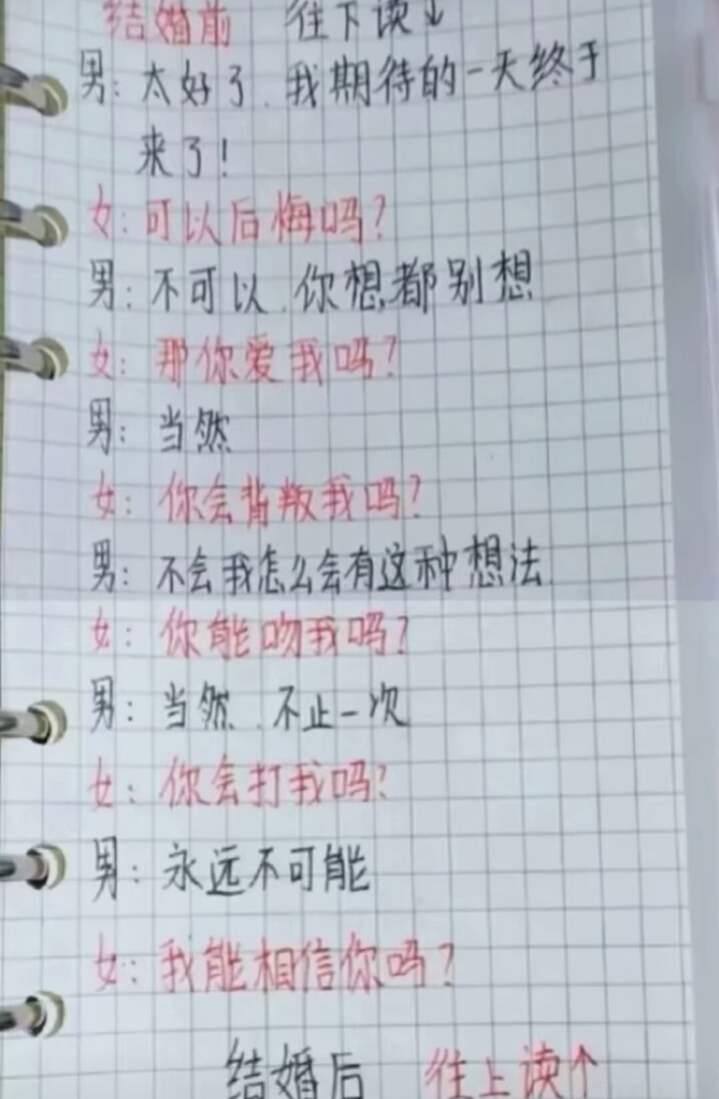 结婚前 往下读↓
男：太好了．我期待的一天终于
来了！
女：可以后悔吗？
男：不可以．你想都别想
女：那你爱我吗？
男：当然
女：你会背叛我吗？
男：不会我怎么会有这种想法
女：你能吻我吗？
男：当然．不止一次
女：你会打我吗？
男：永远不可能
女：我能相信你吗？
结婚后 往上读↑